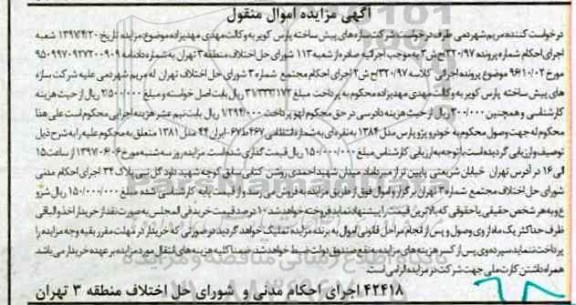 آگهی مزایده اموال منقول
درخواست کننده مریم شهردمی طرف درخواست شرکت سازه های پیش ساخته پارس کویر به وکالت مهدی مهدیزاده موضوع: مزایده تاریخ ۱۳۹۷/۴/۲۰ شعبه
اجرای احکام شماره پرونده ۳۲۰/۹۷ ح ش۳ به موجب اجرائیه صادره از شعبه ۱۱۳ شورای حل اختلاف منطقه ۳ تهران به شماره دادنامه ۹۵۰۹۹۷۰۹۲۷۲۰۰۹۰۹
مورخ ۹۶/۱۰/۰۲ موضوع پرونده اجرائی کلاسه ۳۲۰/۹۷ ح ش ۲ اجرای احکام مجتمع شماره ۳ شورای حل اختلاف تهران له مریم شهدمی علیه شرکت سازه
های پیش ساخته پارس کویر به وکالت مهدی مهدیزاده محکوم به پرداخت مبلغ ریال بابت اصل خواسته و مبلغ ۲/۵۰۰/۰۰۰ ریال از حیث هزینه
کارشناسی و همچنین ۳۰۰/۰۰۰ ریال از حیث هزینه دادرسی در حق محکوم لهو پرداخت ۱۲۹۴۰۰۰ ریال بابت نیم عشر هزینه اجرایی محکوم است علی هذا
محکوم له جهت وصول محکوم به خودرو پژو پارس مدل ۱۳۸۴ به نقره ای به شماره انتظامی ۴۶۷ ط ۶۷ ایران ۴۴ مدل ۱۳۸۱ متعلق به محکوم علیه را به شرح ذیل
توصیف وارزیابی گردیده است با توجه به ارزیابی کارشناس مبلغ ۱۵۰/۰۰۰/۰۰۰ ریال قیمت گذاری شده است. مزایده روز سه شنبه مورخ ۱۳۹۷/۰۶/۰۶ از ساعت ۱۵
الی ۱۶ در آدرس تهران خیابان شریعتی پایین تر از میرداماد میدان شهید احمدی روشن کتابی سابق کوچه شهید داود گل نبی پلاک ۳۴ اجرای احکام مدنی
شورای حل اختلاف مجتمع شماره ۳ تهران برگزار و اموال فوق از طریق مزایده به فروش می رسد و از قیمت پایه کارشناسی شده مبلغ ۱۵۰/۰۰۰/۰۰۰ ریال شرو
ع و به هر شخص حقیقی یا حقوقی که بالاترین قیمت را پیشنهاد نماید فروخته خواهد شد ۱۰ درصد قیمت خرید فی المجلس به صورت نقد از خریدار اخذ و الباقی
ظرف حداکثر یک ماه از وی وصول و پس از انجام مراحل قانونی اموال به برنده مزایده تملیک خواهد گردید در صورتی که خریدار در مهلت مقرر بقیه وجه مزایده را
پرداخت ننماید سپرده وی پس از کسر هزینه های مزایده به نفع صندوق دولت ضبط خواهد شد. ضمنا کلیه هزینه های انتقال مورد مزایده بر عهده خریدار می باشد.
همراه داشتن کارت ملی جهت شرکت در مزایده الزامی است.
۴۲۴۱۸ اجرای احکام مدنی و شورای حل اختلاف منطقه ۳ تهران